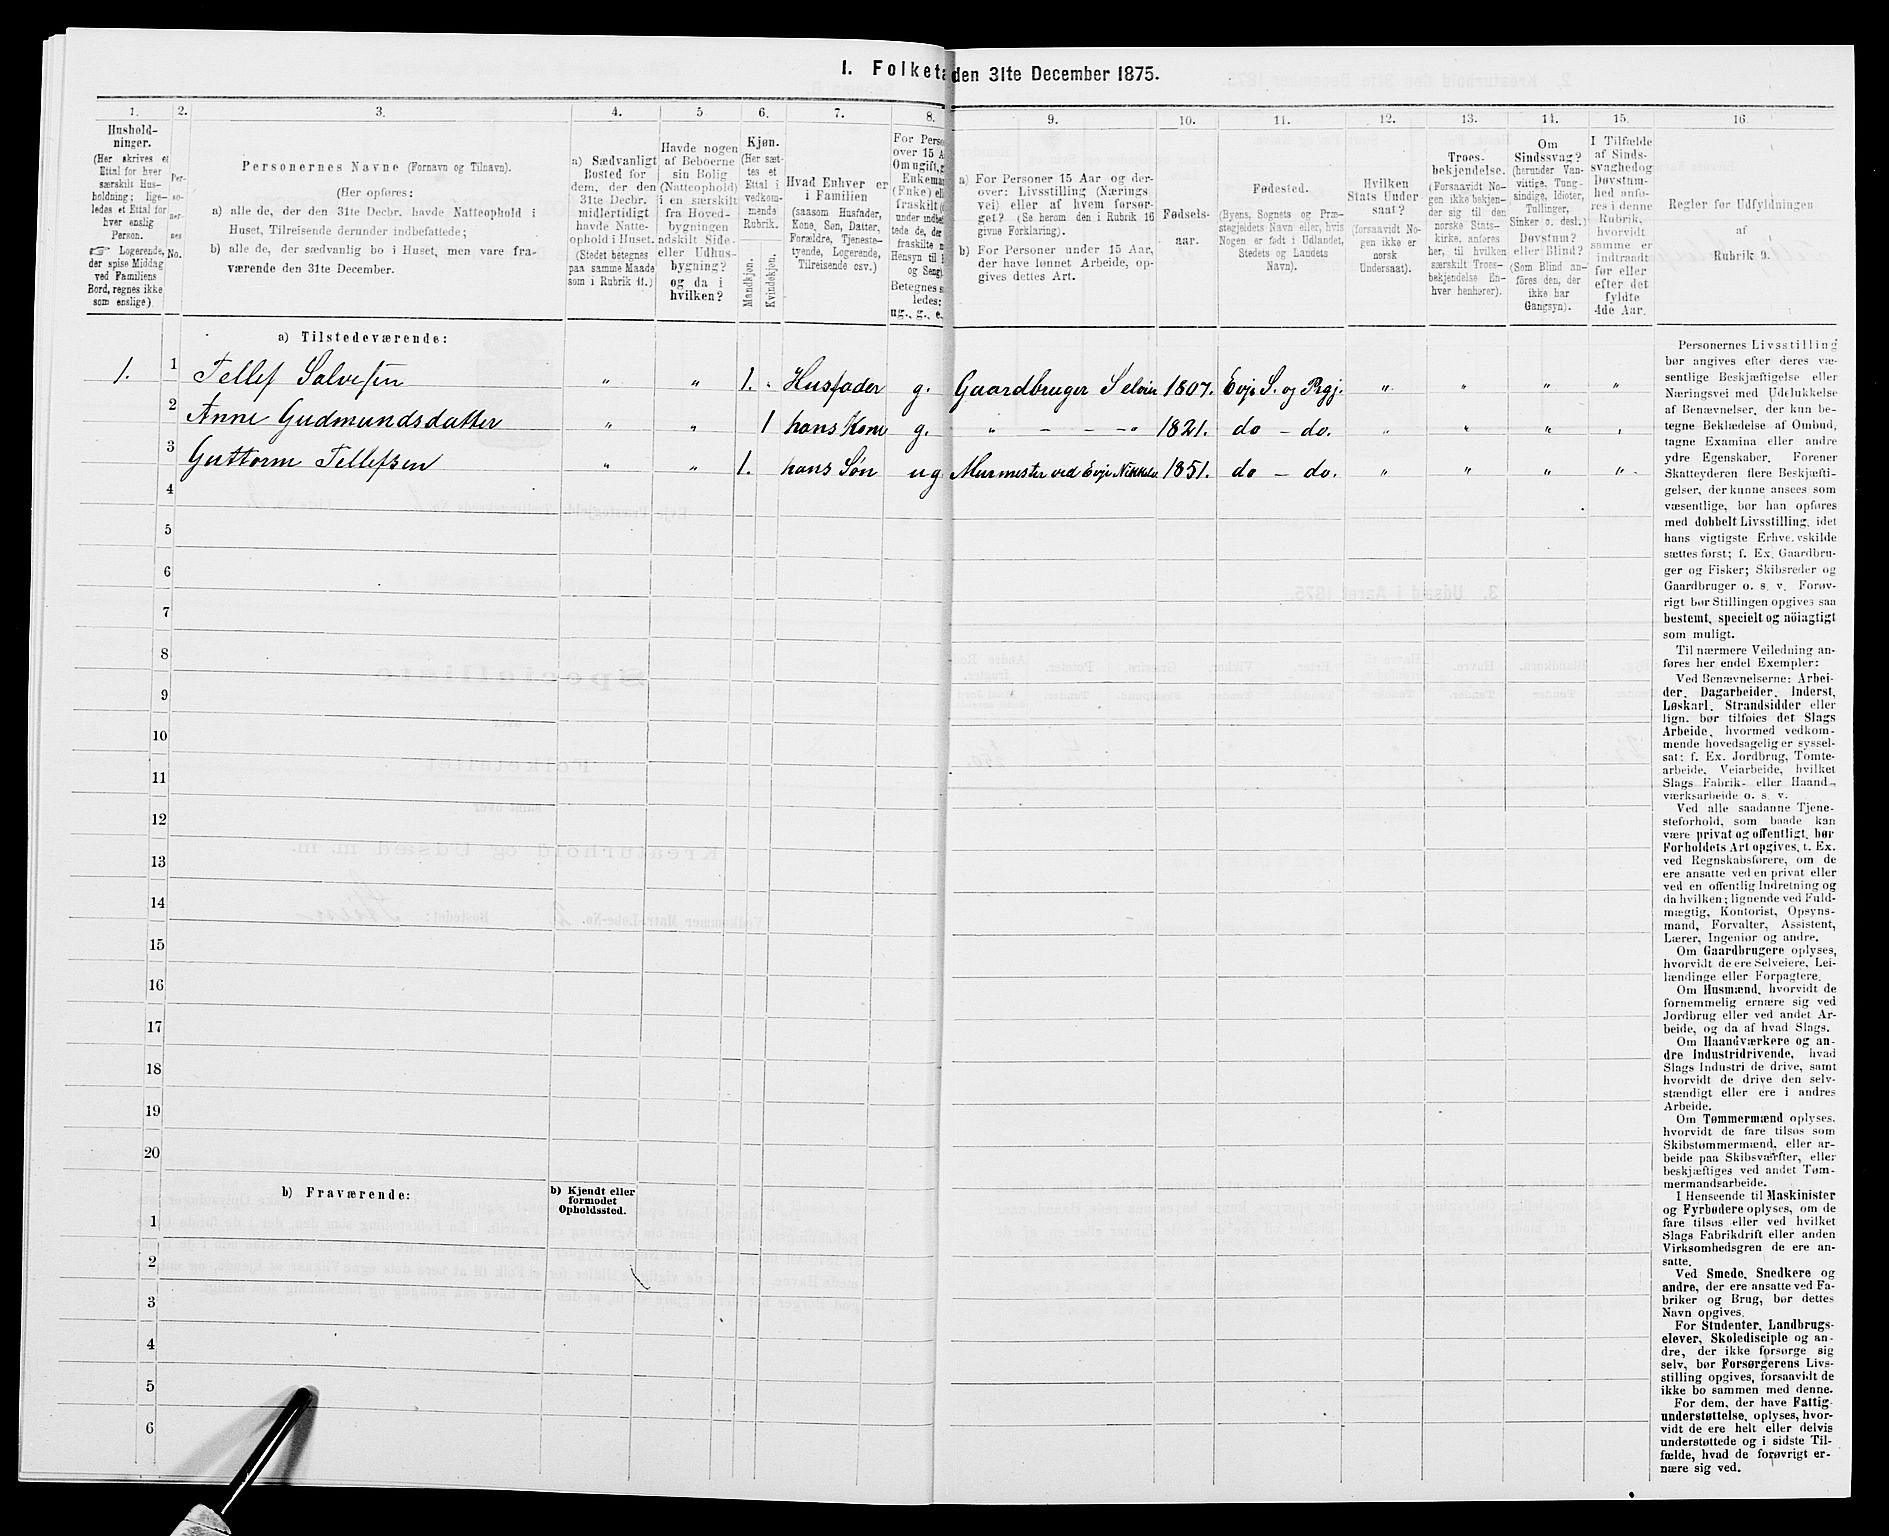 1. Folketa den 31te December 1875.
1. 2. 3. 4. 5 6. 7. 8. 9. 10. 11. 12. 13. 14. 15. 16.
Hushold-
ninger.
(Her skrives et
Ettal for hver
særskilt Hus-
holdning; lige-
ledes et Ettal for
hver enslig
Person.
Logerende,
der spise Middag
ved Familiens
Bord, regnes ikke
som enslige.)
Per-
so-
ner-
nes
No.
Personernes Navne (Fornavn og Tilnavn).
(Her opføres:
a) alle de, der den 31te Decbr. havde Natteophold i
Huset, Tilreisende derunder indbefattede;
b) alle de, der sædvanlig bo i Huset, men vare fra-
værende den 31te December.
a) Sædvanligt
Bosted for
dem, der den
31te Decbr.
midlertidigt
havde Natte-
ophold i Huset.
(Stedet betegnes
paa samme Maade
som i Rubrik 11.)
Havde nogen
af Beboerne
sin Bolig
(Natteophold)
i en særskilt
fra Hoved-
bygningen
adskilt Side-
eller Udhus-
bygning?
og da i
hvilken?
Kjøn.
(Her sæt-
tes et
Ettal i
vedkom-
mende
Rubrik.
Mandkjøn.
Kvindekjøn.
Hvad Enhver er
i Familien
(saasom Husfader,
Kone, Søn, Datter,
Forældre, Tjeneste-
tyende, Logerende,
Tilreisende osv.)
For Perso
over 15 A
Om ugift, g
Enkema
(Enke) ell
fraskilt (
under indbe
tede de, der
fraskilte m
Hensyn til B
og Seng)
Betegnes s
ledes:
ug., g., e.
a) For Personer 15 Aar og der-
over: Livsstilling (Nærings
vei) eller af hvem forsør-
get? (Se herom den i Rubrik 16
givne Forklaring).
b) For Personer under 15 Aar,
der have lønnet Arbeide, op-
gives dettes Art.
Fødsels-
aar.
Fødested.
(Byens, Sognets og Præ-
stegjeldets Navn eller, hvis
Nogen er født i Udlandet,
Stedets og Landets
Navn).
Hvilken
Stats Under
saat?
(forsaavidt No-
gen ikke er
norsk
Undersaat).
Troes-
bekjendelse.
(Forsaavidt No-
gen ikke bekjen-
der sig til den
norske Stats-
kirke, anføres
her, til hvilken
særskilt Troes-
bekjendelse En-
hver henhører).
Om
Sindssvag?
(herunder Van-
vittige, Tung-
sindige, Idioter,
Tullinger,
Sinker o. desl.)
Døvstum?
eller Blind?
(Som Blind an-
føres den, der
ikke har
Gangsyn).
I Tilfælde
af Sinds-
svaghed og
Døvstum-
hed anfø-
res i denne
Rubrik,
hvorvidt
samme er
indtraadt
før eller
efter det
fyldte
4de Aar.
Regler for Udfyldningen
af
Rubrik 9.
a) Tilstedeværende:
1. 1 Tellef Salvesen " " 1. Husfader g. Gaardbruger Selveier 1807. Evje S. og Prgj. " " " "
2 Anne Gudmundsdatter " " 1 hans Kone g. " - - - " 1821. do - do. " " "
3 Guttorm Tellefsen " " 1. hans Søn ug Murmester ved Evje Nikkelv. 1851. do - do. " " " "
4
5
6
7
8
9
10
11
12
13
14
15
16
17
18
19
20
b) Fraværende:
b) Kjendt eller
formodet
Opholdssted.
1
2
3
4
5
6
Personernes Livsstilling
bør angives efter deres væ-
sentlige Beskjæftigelse eller
Næringsvei med Udelukkelse
af Benævnelser, der kun be-
tegne Beklædelse af Ombud,
tagne Examina eller andre
ydre Egenskaber. Forener
Skatteyderen flere Beskjæfti-
gelser, der kunne ansees som
væsentlige, bør han opføres
med dobbelt Livsstilling, idet
hans vigtigste Erhvervskilde
sættes først; f. Ex. Gaardbru-
ger og Fisker; Skibsreder og
Gaardbruger o. s. v. Forøv-
rigt bør Stillingen opgives saa
bestemt, specielt og nöiagtigt
som muligt.
Til nærmere Veiledning an-
føres her endel Exempler:
Ved Benævnelserne: Arbei-
der, Dagarbeider, Inderst,
Løskarl, Strandsidder eller
lign. bør tilføies det Slags
Arbeide, hvormed vedkom-
mende hovedsagelig er syssel-
sat; f. Ex. Jordbrug, Tomte-
arbeide, Veiarbeide, hvilket
Slags Fabrik- eller Haand-
værksarbeide o. s. v.
Ved alle saadanne Tjene-
steforhold, som baade kan
være privat og offentligt, bør
Forholdets Art opgives, t. Ex.
ved Regnskabsførere, om de
ere ansatte ved en privat eller
ved en offentlig Indretning og
da hvilken; lignende ved Fuld-
mægtig, Kontorist, Opsyns-
mand, Forvalter, Assistent,
Lærer, Ingeniør og andre.
Om Gaardbrugere oplyses,
hvorvidt de ere Selveiere, Lei-
lændinge eller Forpagtere.
Om Husmænd, hvorvidt de
fornemmelig ernære sig ved
Jordbrug eller ved andet Ar-
beide, og da af hvad Slags.
Om Haandværkere og an-
dre Industridrivende, hvad
Slags Industri de drive, samt
hvorvidt de drive den selv-
stændigt eller ere i andres
Arbeide.
Om Tømmermænd oplyses,
hvorvidt de fare tilsøs som
Skibstømmermænd, eller ar-
beide paa Skibsværfter, eller
beskjæftiges ved andet Tøm-
mermandsarbeide.
I Henseende til Maskinister
og Fyrbødere oplyses, om de
fare tilsøs eller ved hvilket
Slags Fabrikdrift eller anden
Virksomhedsgren de ere an-
satte.
Ved Smede, Snedkere og
andre, der ere ansatte ved Fa-
briker og Brug, bør dettes
Navn opgives.
For Studenter, Landbrugs-
elever, Skoledisciple og an-
dre, der ikke forsørge sig
selv, bør Forsørgerens Livs-
stilling opgives, forsaavidt de
ikke bo sammen med denne.
For dem, der have Fattig-
understøttelse, oplyses, hvor-
vidt de ere helt eller delvis
understøttede og i sidste Til-
fælde, hvad de forøvrigt er-
nære sig ved.